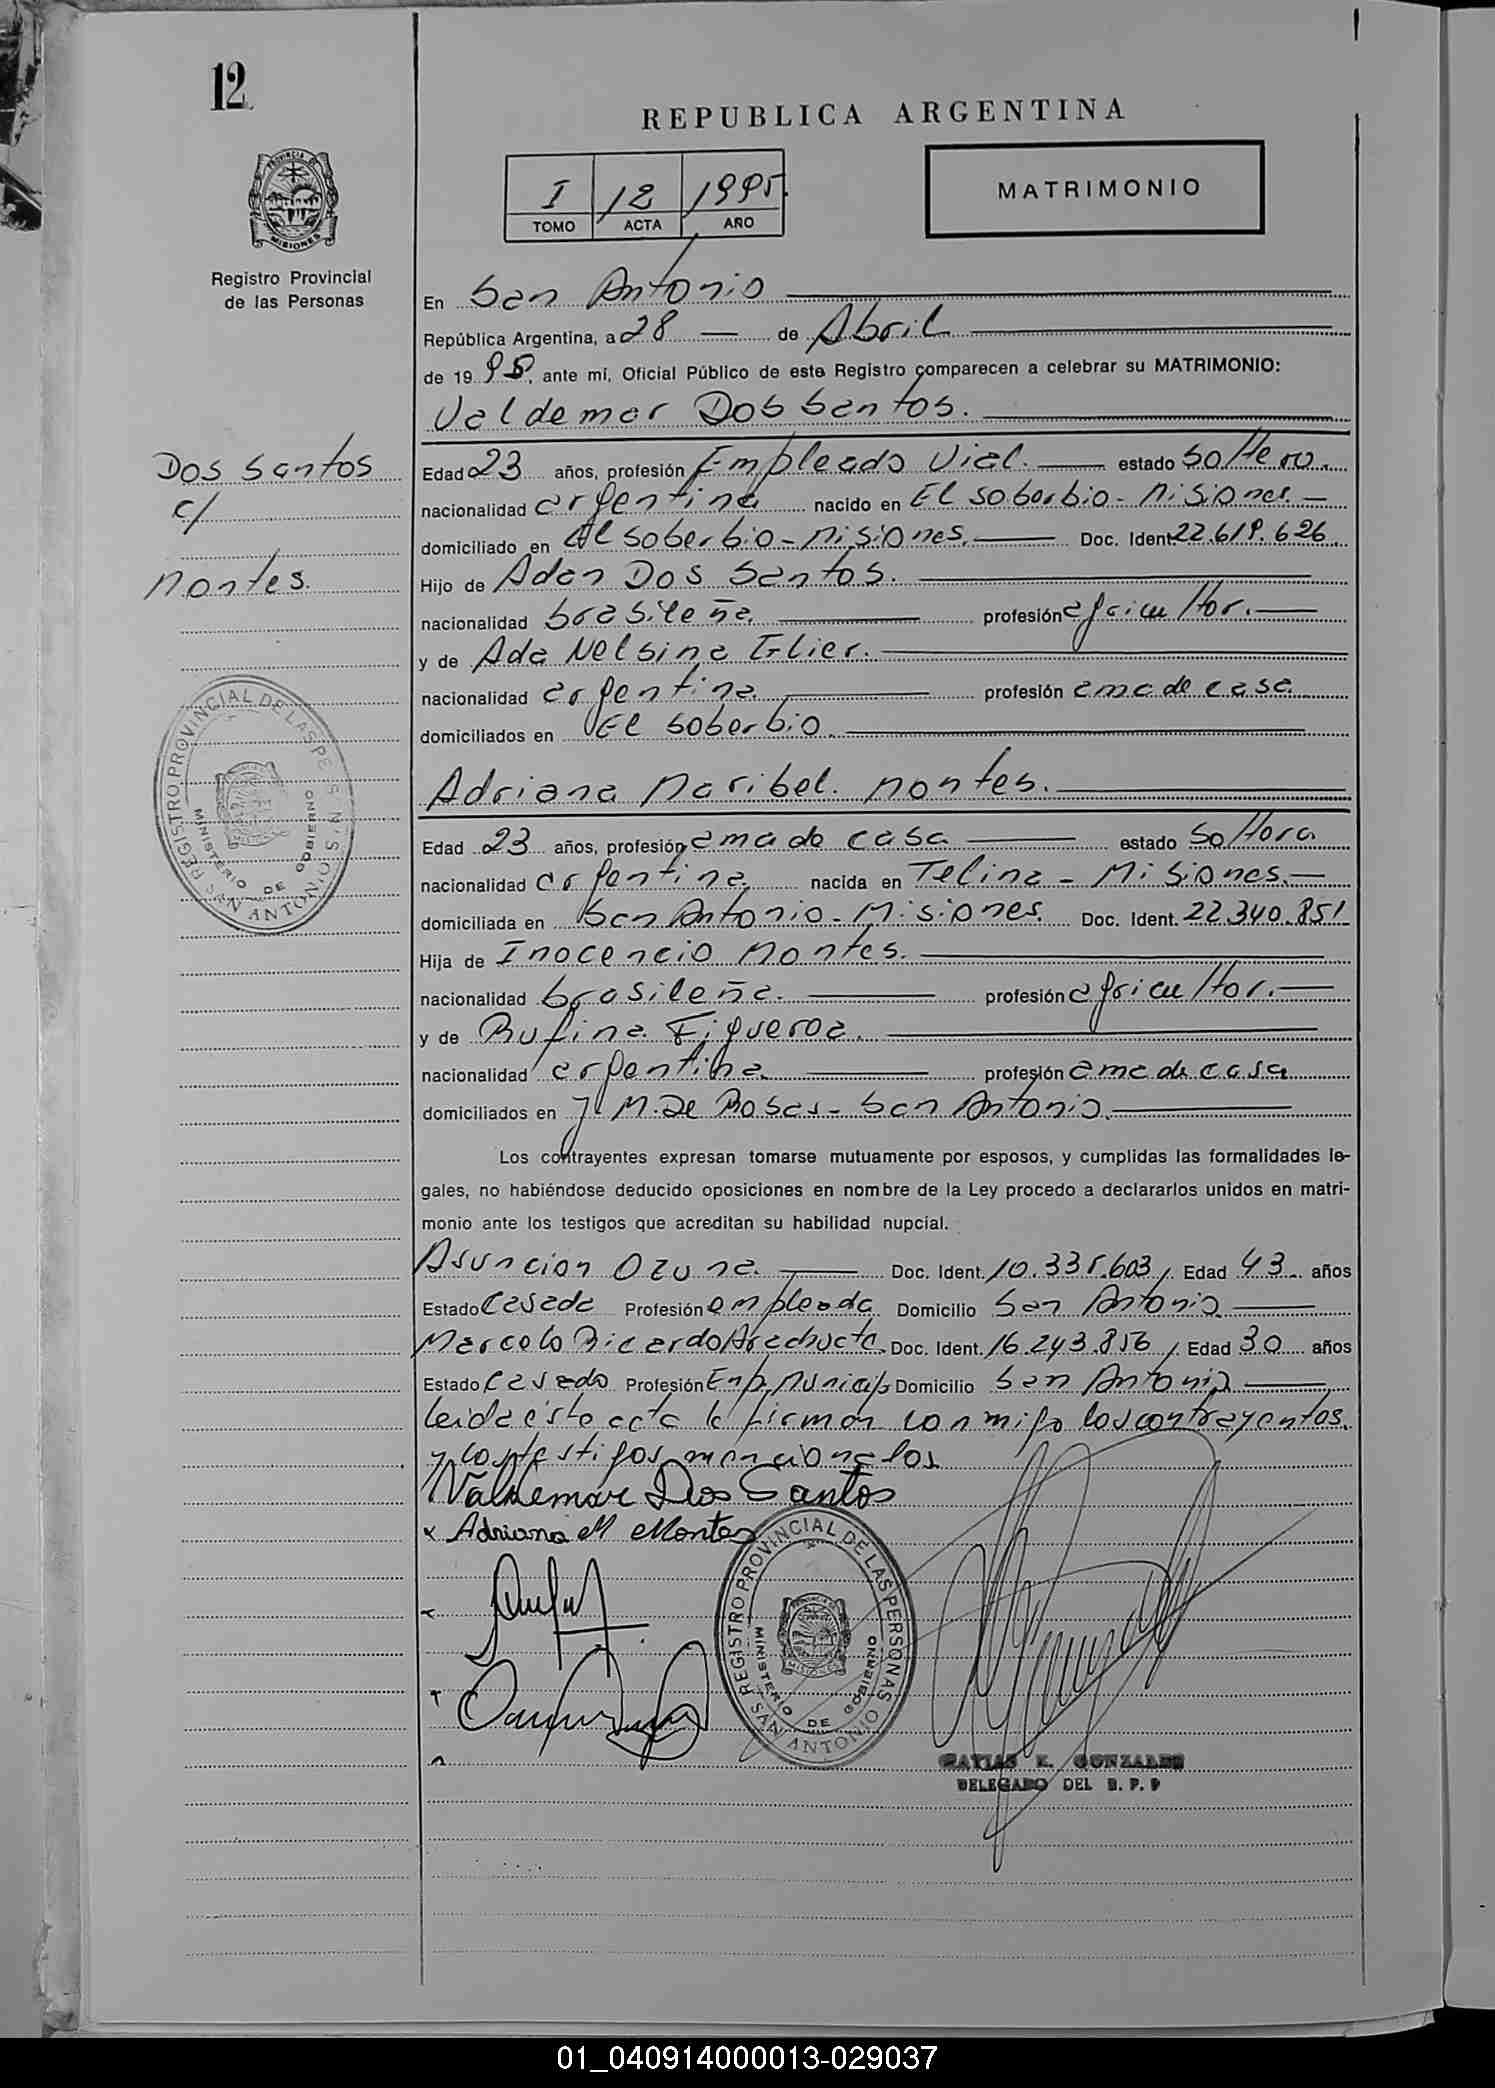 12
REPUBLICA ARGENTINA
I 12 1995.
TOMO ACTA AÑO
MATRIMONIO
PROVINCIA DE MISIONES
Registro Provincial
de las Personas
En San Antonio
República Argentina, a 28 de Abril
de 1995, ante mí, Oficial Público de este Registro comparecen a celebrar su MATRIMONIO:
Valdemar Dos Santos.
Dos Santos
c/
Montes.
Edad 23 años, profesión Empleado Vial. estado Soltero.
nacionalidad argentina nacido en El Soberbio - Misiones.
domiciliado en El Soberbio - Misiones. Doc. Ident. 22.619.626
Hijo de Adan Dos Santos.
nacionalidad brasileña. profesión agricultor.
y de Ada Nelsina Glier.
nacionalidad argentina. profesión ama de casa
domiciliados en El Soberbio.
REGISTRO PROVINCIAL DE LAS PERSONAS
MINISTERIO DE GOBIERNO
SAN ANTONIO
Adriana Maribel Montes.
Edad 23 años, profesión ama de casa estado Soltera
nacionalidad argentina nacida en Telina - Misiones.
domiciliada en San Antonio - Misiones. Doc. Ident. 22.340.851
Hija de Inocencio Montes.
nacionalidad brasileña. profesión agricultor.
y de Rufina Figueroa.
nacionalidad argentina. profesión ama de casa
domiciliados en J M. De Rosas - San Antonio.
Los contrayentes expresan tomarse mutuamente por esposos, y cumplidas las formalidades le-
gales, no habiéndose deducido oposiciones en nombre de la Ley procedo a declararlos unidos en matri-
monio ante los testigos que acreditan su habilidad nupcial.
Asuncion Ozuna. Doc. Ident. 10.335.603, Edad 43 años
Estado Casada Profesión empleada Domicilio San Antonio
Marcelo Ricardo Arachucta Doc. Ident. 16.243.856, Edad 30 años
Estado Casado Profesión Emp. Municip Domicilio San Antonio
leida esta acta la firman conmigo los contrayentes
y los testigos mencionados
Valdemar Dos Santos
x Adriana M Montes
REGISTRO PROVINCIAL DE LAS PERSONAS
MINISTERIO DE GOBIERNO
MISIONES
SAN ANTONIO
E. GONZALES
DELEGADO DEL R. P. P
01_040914000013-029037